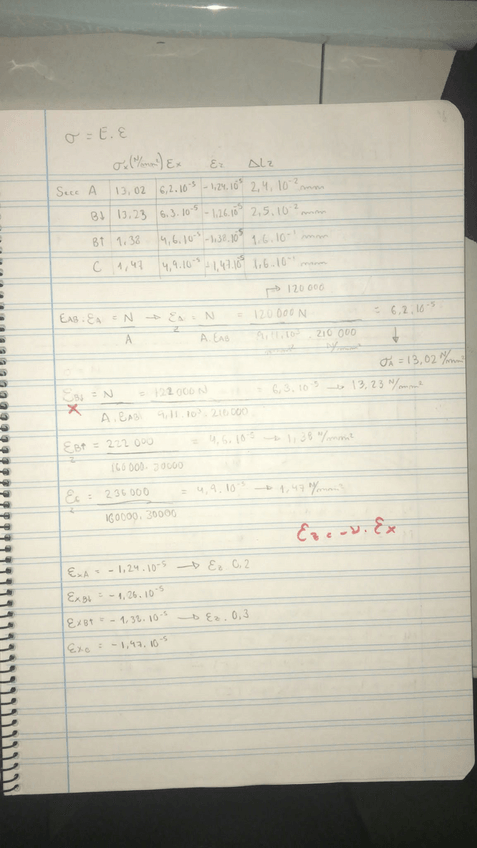 σ = E.ε
σx(N/mm²) Εx Εz Δlz
Secc A 13,02 6,2.10⁻⁵ -1,24.10⁻⁵ 2,4.10⁻² mm
B↓ 13,23 6,3.10⁻⁵ -1,26.10⁻⁵ 2,5.10⁻² mm
B↑ 1,38 4,6.10⁻⁵ -1,38.10⁻⁵ 1,6.10⁻² mm
C 1,47 4,9.10⁻⁵ -1,47.10⁻⁵ 1,6.10⁻² mm
→ 120000
EAB.εA = N/A → εA = N/A.EAB = 120000 N/9,11.10³.210000 = 6,2.10⁻⁵
N/mm²
σA = 13,02 N/mm²
εB↓ = N/A.EAB = 122000N/9,11.10³.210000 = 6,3.10⁻⁵ → 13,23 N/mm²
x
εB↑ = 222000/160000.30000 = 4,6.10⁻⁵ → 1,38 N/mm²
εc = 236000/160000.30000 = 4,9.10⁻⁵ → 1,47 N/mm²
εz = -ν.εx
εxA = -1,24.10⁻⁵ → εz.0,2
εxB↓ = -1,26.10⁻⁵
εxB↑ = -1,38.10⁻⁵ → εz.0,3
εxc = -1,47.10⁻⁵